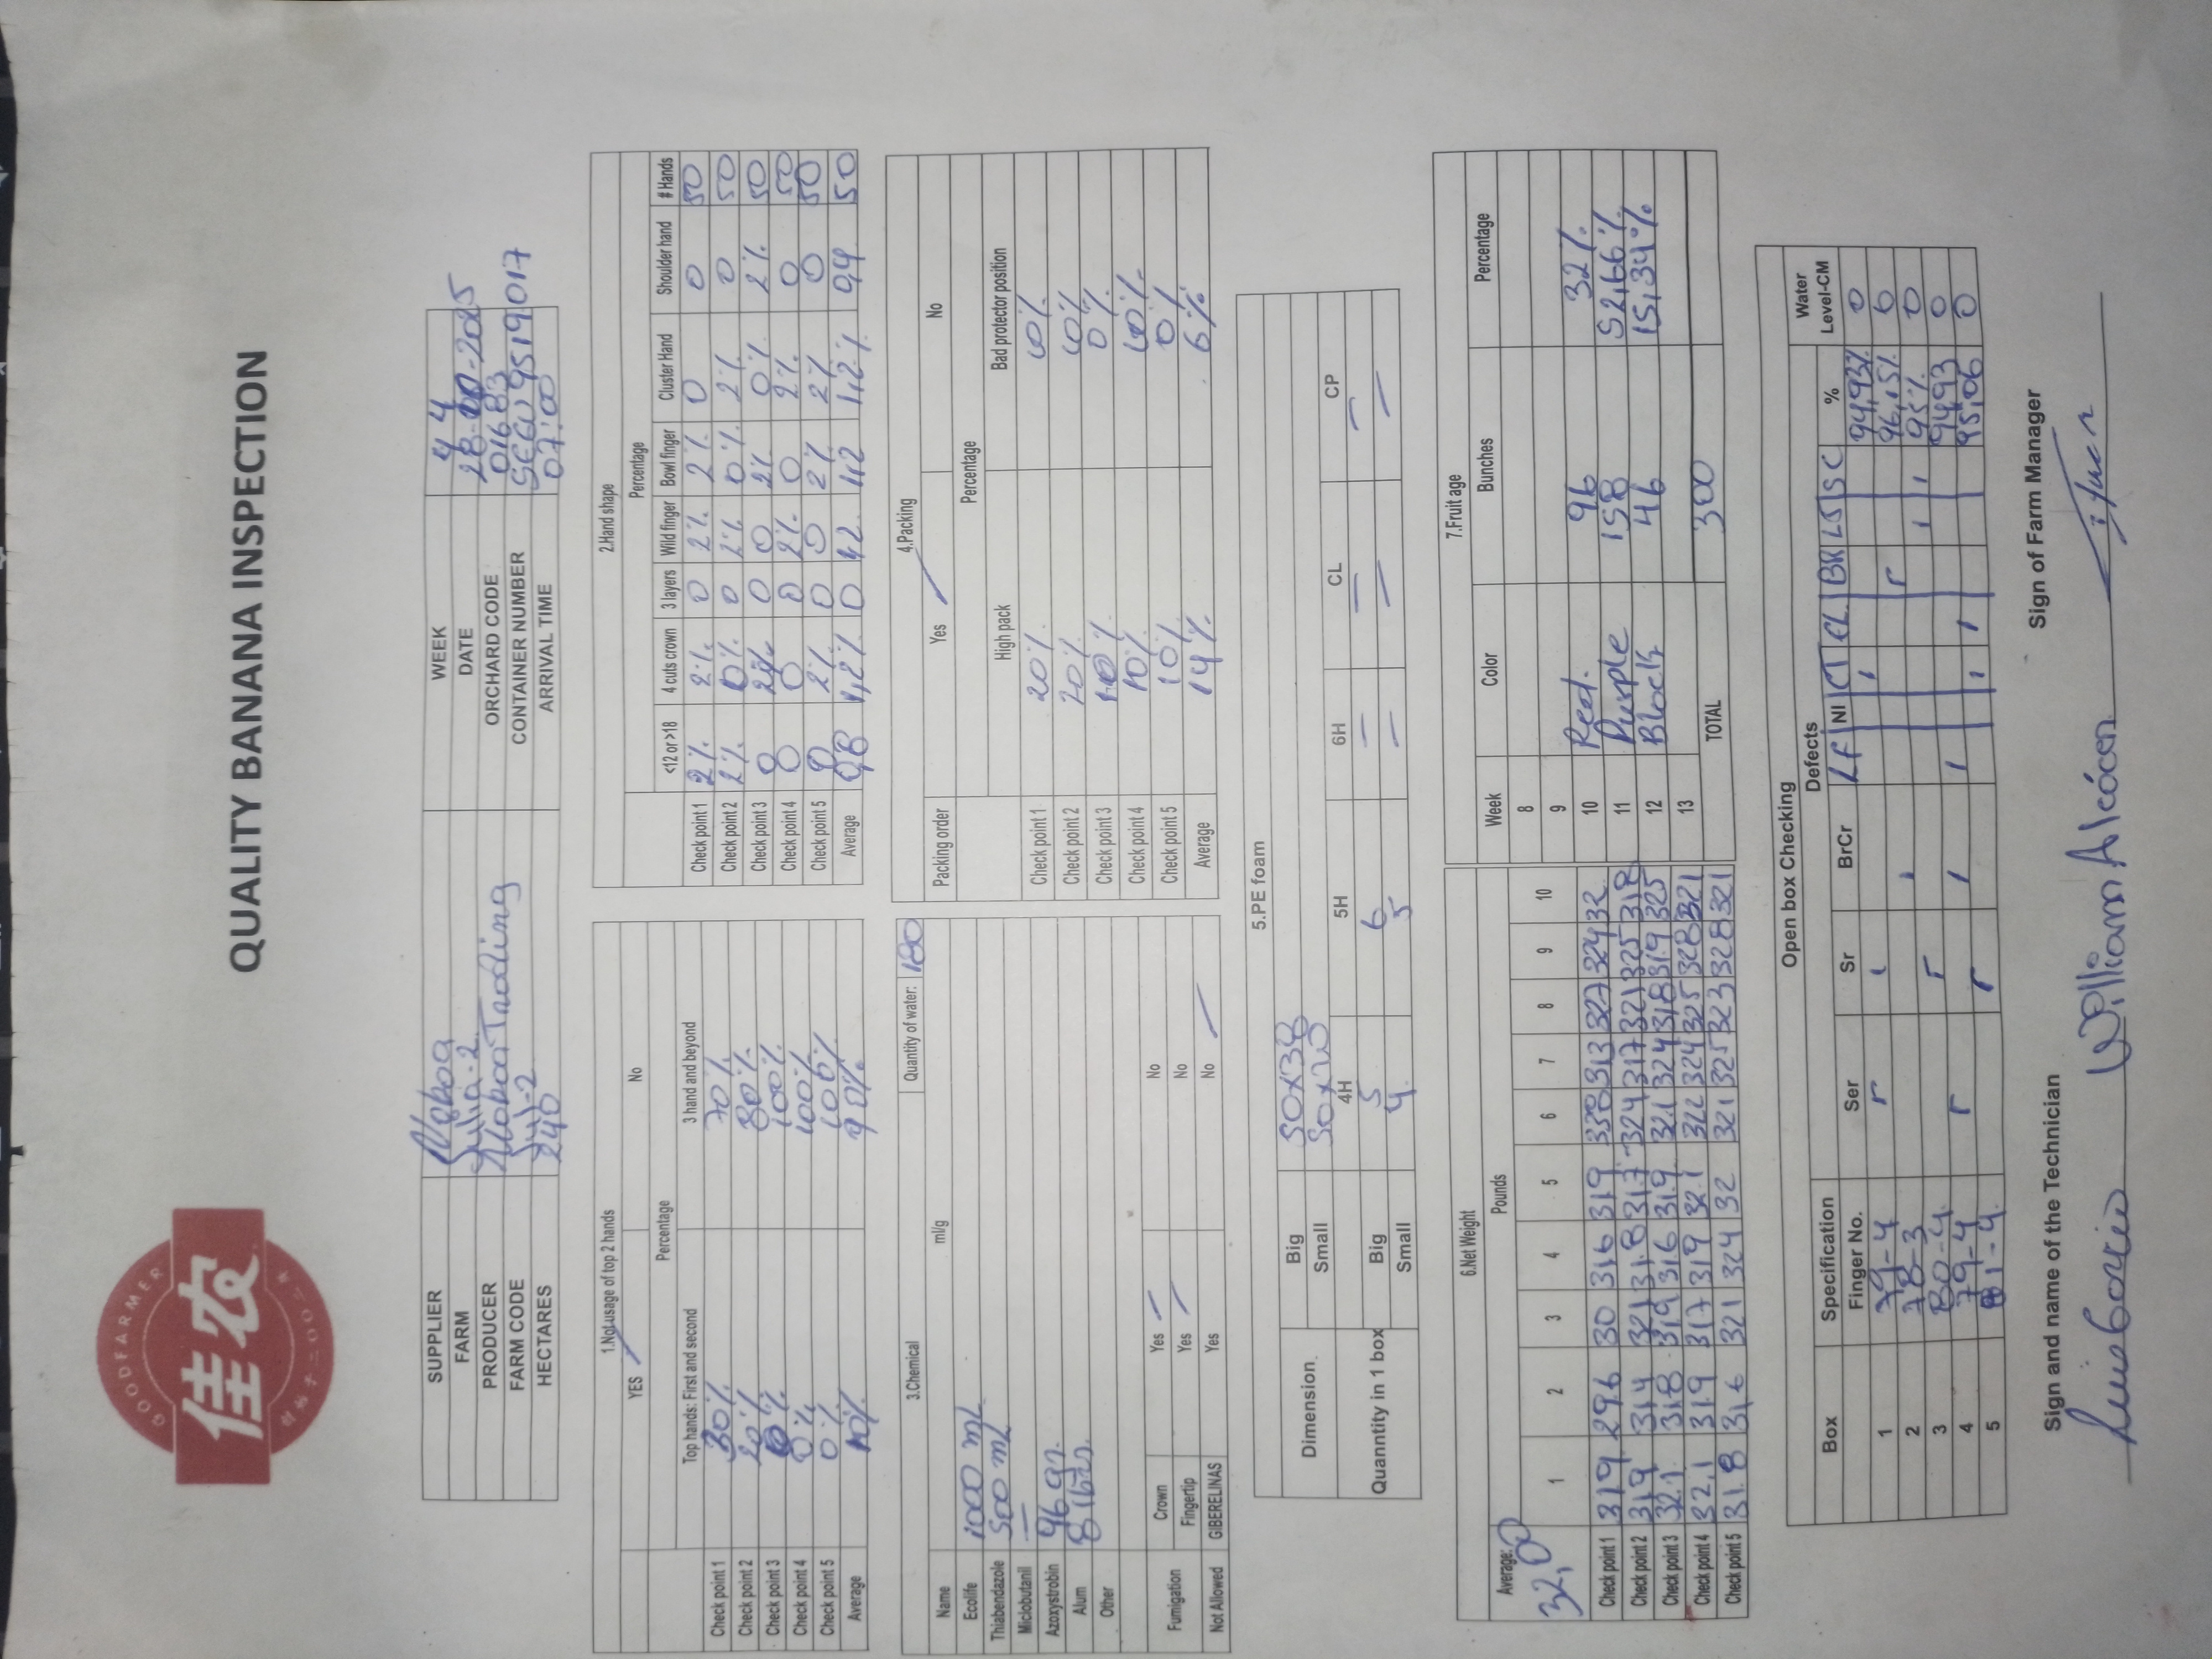 GOODFARMER
佳农
创始于二〇〇二年
QUALITY BANANA INSPECTION
SUPPLIER Noboa WEEK 44
FARM Julia-2. DATE 28-10-2025
PRODUCER Noboa Trading ORCHARD CODE 01683
FARM CODE Jul-2 CONTAINER NUMBER SEGU 9519017
HECTARES 240 ARRIVAL TIME 07:00
1.Not usage of top 2 hands
YES No
Percentage
Top hands: First and second 3 hand and beyond
Check point 1 30% 70%
Check point 2 20% 80%
Check point 3 0% 100%
Check point 4 0% 100%
Check point 5 0% 100%
Average 10% 90%
2.Hand shape
Percentage
<12 or >18 4 cuts crown 3 layers Wild finger Bowl finger Cluster Hand Shoulder hand # Hands
Check point 1 2% 2% 0 2% 2% 0 0 50
Check point 2 2% 0% 0 2% 0% 2% 0 50
Check point 3 0 2% 0 0 2% 0% 2% 50
Check point 4 0 0 0 2% 0 2% 0 50
Check point 5 0 2% 0 0 2% 2% 0 50
Average 0,8 1,2% 0 1,2 1,2 1,2% 0,4 50
3.Chemical Quantity of water: 180
Name ml/g
Ecolife 1000 mL
Thiabendazole 500 mL
Miclobutanil —
Azoxystrobin 96 gr.
Alum 8 lbrs.
Other
Fumigation Crown Yes No
Fingertip Yes No
Not Allowed GIBERELINAS Yes No
4.Packing
Packing order Yes No
Percentage
High pack Bad protector position
Check point 1 20% 10%
Check point 2 20% 10%
Check point 3 10% 0%
Check point 4 10% 10%
Check point 5 10% 0%
Average 14% 6%
5.PE foam
Dimension Big 50x38
Small 50x20
4H 5H 6H CL CP
Quanntity in 1 box Big 5 6 — — —
Small 4 5 — — —
6.Net Weight
Average: 32,00 Pounds
1 2 3 4 5 6 7 8 9 10
Check point 1 31,9 29,6 30 31,6 31,9 33,8 31,3 32,7 32,4 32
Check point 2 31,9 31,4 32,1 31.8 31.7 32,4 31,7 32,1 32,5 31,8
Check point 3 32.1 31.8 31,9 31,6 31.9 32.1 32,4 31,8 31,9 32,5
Check point 4 32,1 31.9 31,7 31,9 32.1 32,2 32,4 32,5 32,8 32,1
Check point 5 31.8 31,6 32,1 32,4 32 32,1 32,5 32,3 32,8 32,1
7.Fruit age
Week Color Bunches Percentage
8
9
10 Red. 96 32%
11 Purple 158 52,66%
12 Black 46 15,34%
13
TOTAL 300
Open box Checking
Box Specification Defects Water Level-CM
Finger No. Ser Sr BrCr LF NI CT FL BR LS SC %
1 79-4 94,93% 0
2 78-3 96,15% 0
3 80-4 95% 0
4 79-4 94,93 0
5 81-4 95,06 0
Sign and name of the Technician Sign of Farm Manager
Luis Garcia William Alcócer